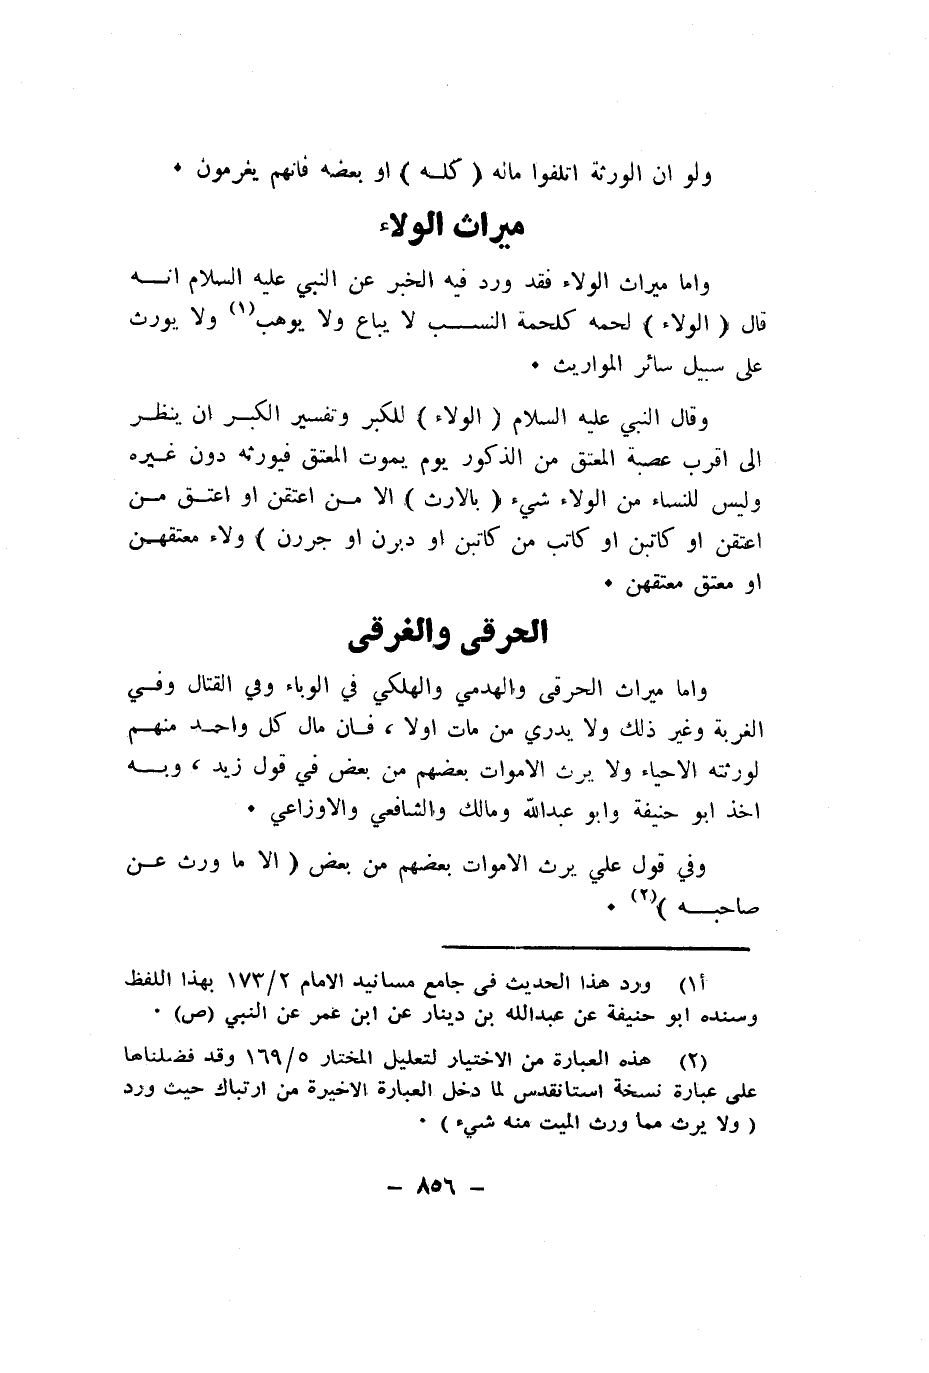 ولو ان الورثة اتلفوا ماله ( كلـه ) او بعضه فانهم يغرمون ٠
ميراث الولاء
واما ميراث الولاء فقد ورد فيه الخبر عن النبي عليه السلام انـــه
قال ( الولاء ) لحمه كلحمة النســـب لا يباع ولا يوهب(١) ولا يورث
على سبيل سائر المواريث ٠
وقال النبي عليه السلام ( الولاء ) للكبر وتفسير الكبـر ان ينظـر
الى اقرب عصبة المعتق من الذكور يوم يموت المعتق فيورثه دون غـيره
وليس للنساء من الولاء شيء ( بالارث ) الا مـن اعتقن او اعتـق مـن
اعتقن او كاتبن او كاتب من كاتبن او دبرن او جررن ) ولاء معتقهـن
او معتق معتقهن ٠
الحرقى والغرقى
واما ميراث الحرقى والهدمي والهلكي في الوباء وفي القتال وفـي
الغربة وغير ذلك ولا يدري من مات اولا ، فـان مال كل واحـد منهـم
لورثته الاحياء ولا يرث الاموات بعضهم من بعض في قول زيد ، وبـــه
اخذ ابو حنيفة وابو عبدالله ومالك والشافعي والاوزاعي ٠
وفي قول علي يرث الاموات بعضهم من بعض ( الا ما ورث عـن
صاحبـــه )(٢) ٠
أ١) ورد هذا الحديث فى جامع مسانيد الامام ١٧٣/٢ بهذا اللفظ
وسنده ابو حنيفة عن عبدالله بن دينار عن ابن عمر عن النبي (ص) ٠
(٢) هذه العبارة من الاختيار لتعليل المختار ١٦٩/٥ وقد فضلناها
على عبارة نسخة استانقدس لما دخل العبارة الاخيرة من ارتباك حيث ورد
( ولا يرث مما ورث الميت منه شيء ) ٠
– ٨٥٦ –